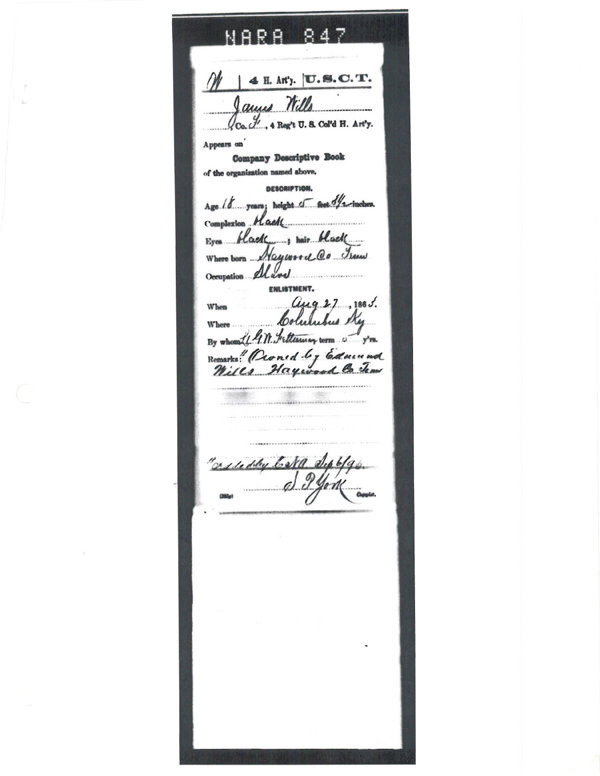 NARA 847
W | 4 H. Art'y. | U.S.C.T.
James Wills
Co. F, 4 Reg't U. S. Col'd H. Art'y.
Appears on
Company Descriptive Book
of the organization named above.
DESCRIPTION.
Age 18 years; height 5 feet inches.
Complexion black
Eyes black; hair black
Where born Haywood Co Tenn
Occupation Slave
ENLISTMENT.
When Aug 27, 186
Where Columbus Ky
By whom term y'rs.
Remarks: "Owned by Edmund
Wills Haywood Co Tenn
by Sep 6/90
S P York
Copyist.